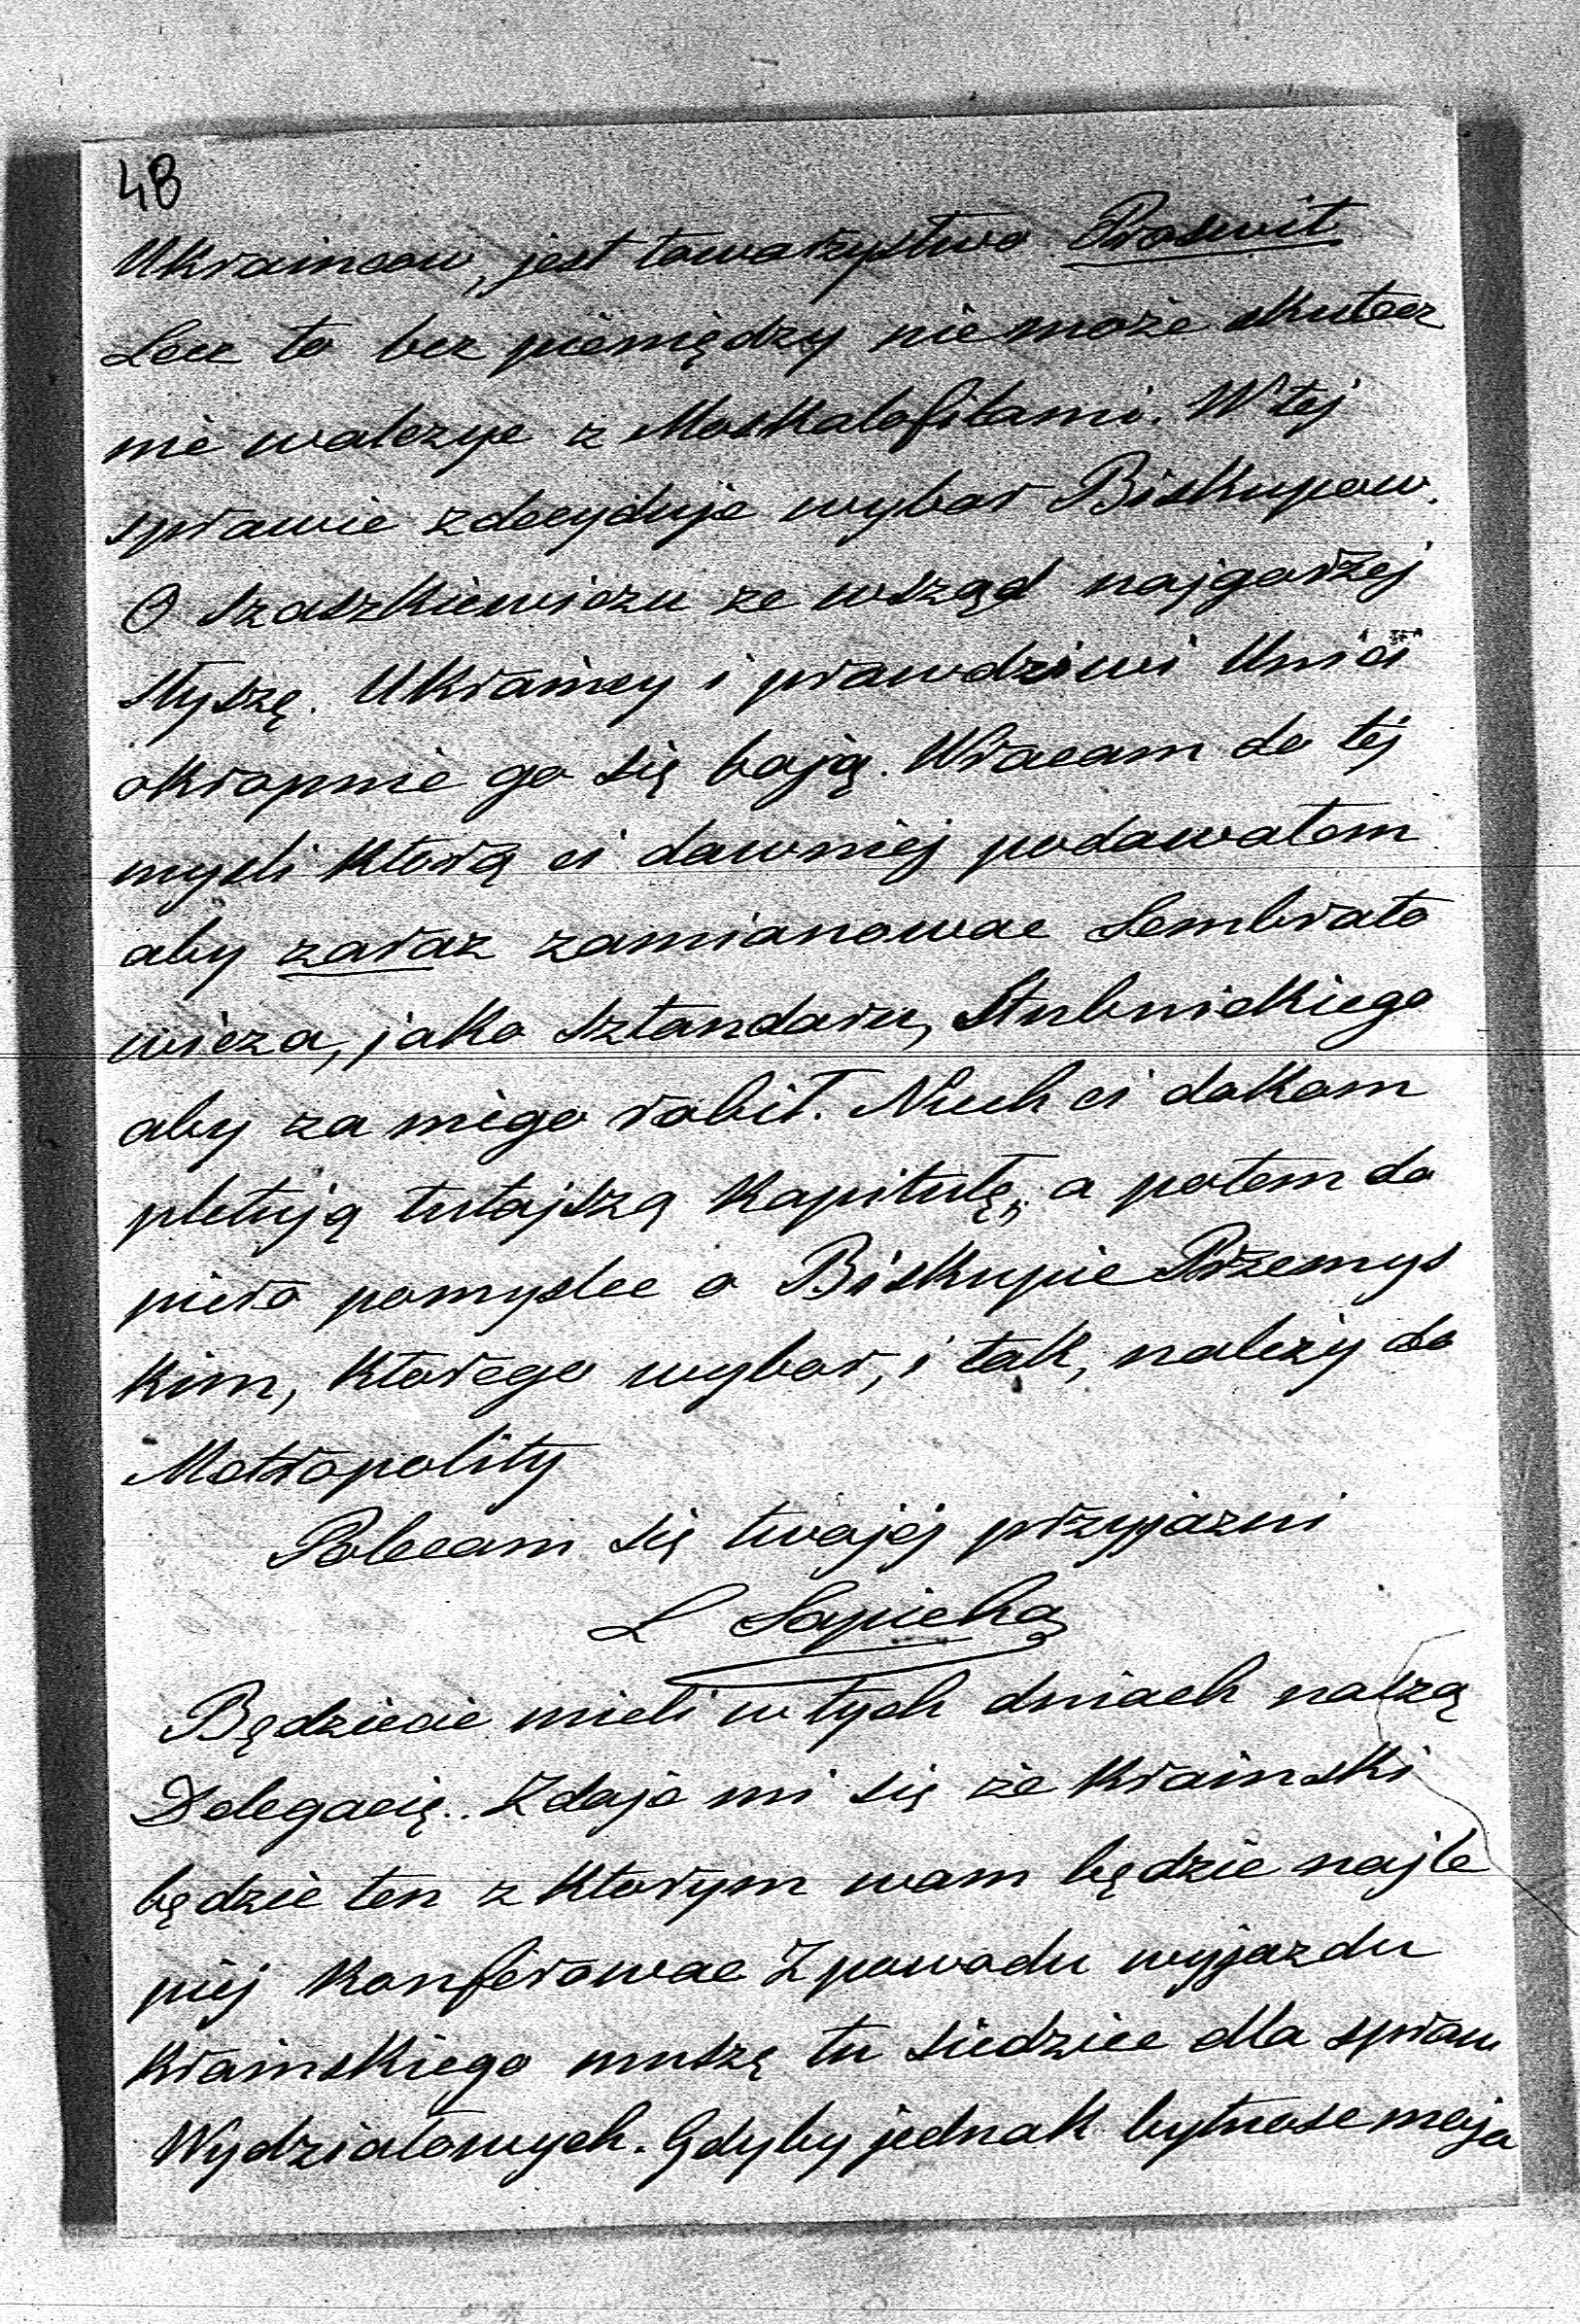 48
Ukraincow, jest towarzystwo Proswit
Lecz to bez pieniędzy nie może skutecz
nie walczyc z Moskalofilami. W tej
sprawie zdecyduje wybor Biskupow.
O Szaszkiewiczu ze wsząd najgorżej
słyszę. Ukraincy i prawdziwi Unici
okropnie go się boją. Wracam do tej
mysli ktorą ci dawniej podawałem
aby zaraz zamianowac Sembrato
wicza, jako sztandaru, Stubnickiego
aby za niego robił. Niech ci dokom
pletują tutajszą Kapitułę, a potem do
piero pomyslec o Biskupie Przemys
kim, ktorego wybor, i tak, należy do
Metropolity
Polecam się twojej przyjazni
L Sapieha
Będziecie mieli w tych dniach naszą
Delegacię.. Zdaje mi się że Krainski
będzie ten z ktorym wam będzie najle
piej konferowac Z powodu wyjazdu
Krainskiego muszę tu siedziec dla spraw
Wydziałowych. Gdyby jednak bytnosc moja